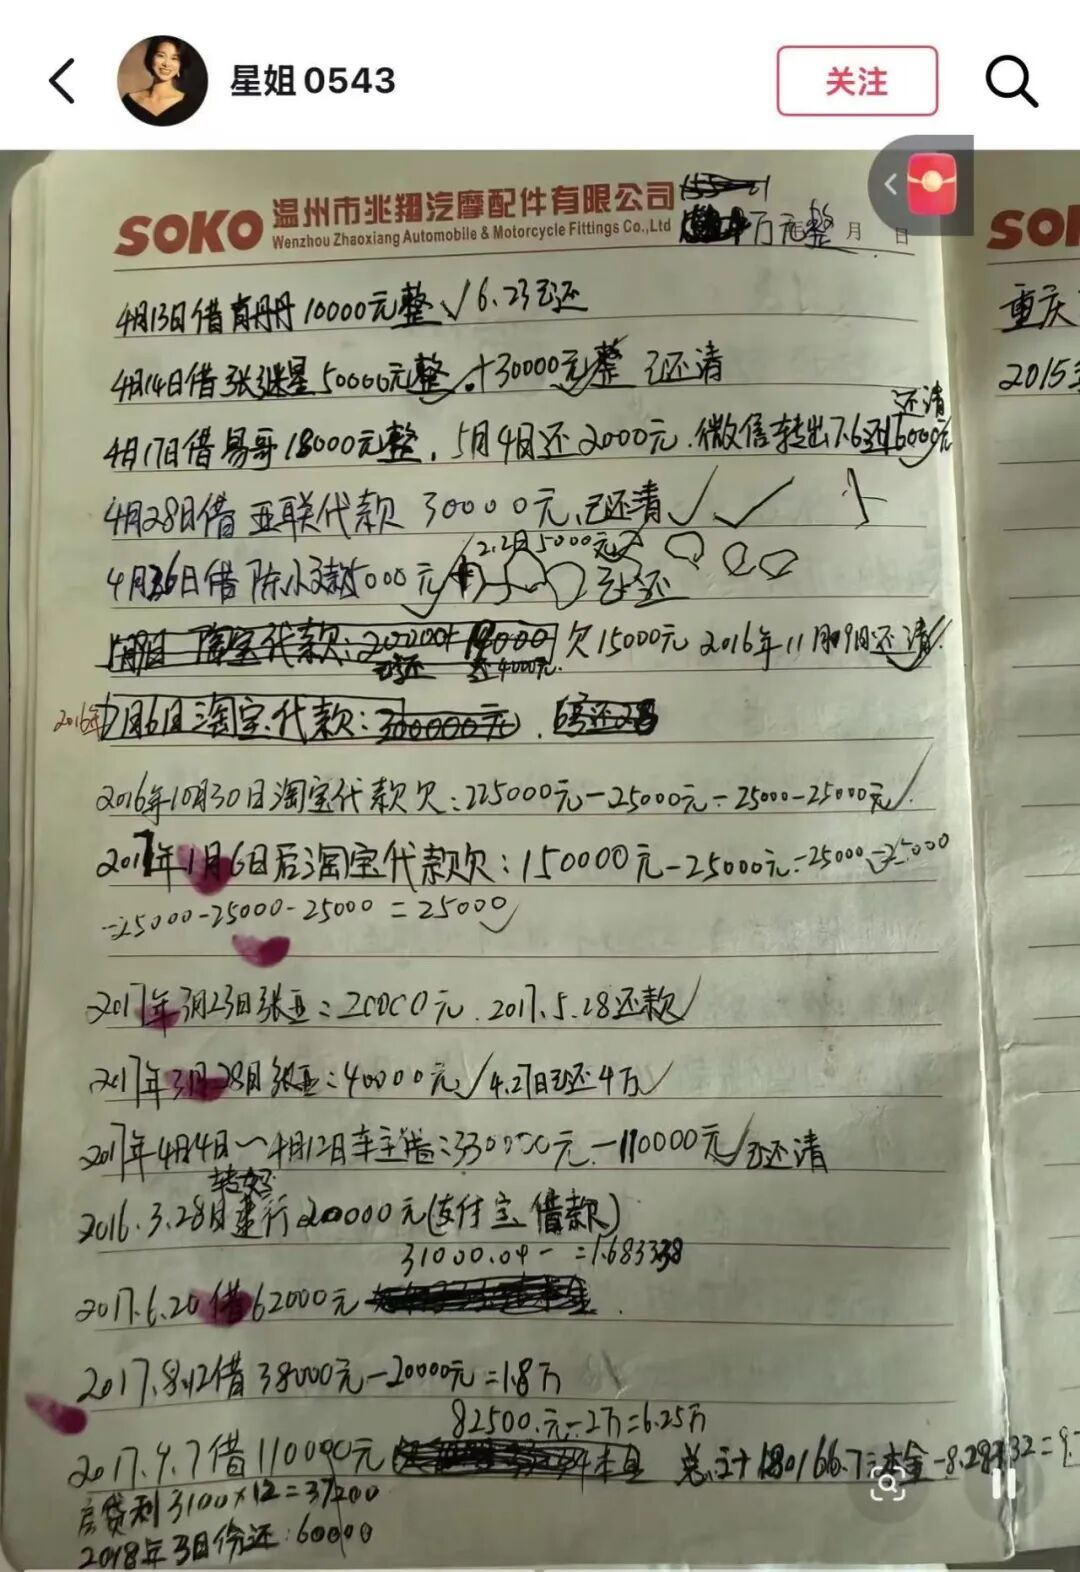 星姐0543
关注
SOKO 温州市兆翔汽摩配件有限公司
Wenzhou Zhaoxiang Automobile & Motorcycle Fittings Co.,Ltd
万元整 月 日
SO
4月13日借肖丹丹10000元整√6.23已还
4月14日借张继星50000元整.+30000元整 已还清
还清
4月17日借易哥18000元整,5月4日还2000元.微信转出7.6还16000元
4月28日借亚联代款 30000元,已还清√√
2.2日5000元
4月26日借陈小 5000元 已还
淘宝代款: 欠15000元 2016年11月09日还清
已还 还4000元
2016年7月6日淘宝代款:300000元.
2016年10月30日淘宝代款欠:225000元-25000元-25000-25000元√
2017年1月6日后淘宝代款欠:150000元-25000元-25000-25000
-25000-25000-25000=25000√
2017年3月23日张亚:20000元.2017.5.28还款√
2017年3月28日张亚:40000元√4.27日已还4万√
2017年4月4日~4月12日车主借:330000元-110000元√已还清
2016.3.28日建行200000元(支付宝借款)
31000.04- =1.683338
2017.6.20借62000元
2017.8.12借38000元-20000元=1.8万
82500.元-2万=6.25万
2017.9.7借110000元 本息 总计180166.7 本金-8.28
房贷利3100×12=37200
2018年3日份还:60000
重庆
2015